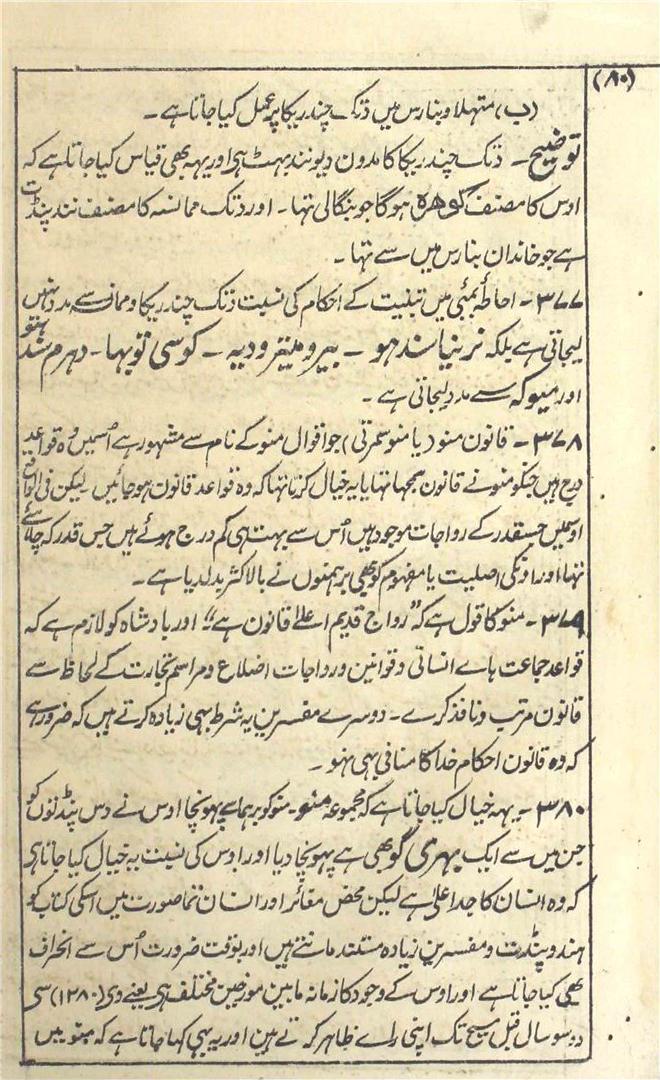 (۸۰)
(ب) متہلا و بنارس میں دتک چندریکا پر عمل کیا جاتا ہے ۔
توضیح ۔ دتک چندریکا کا مدون دیونند بہٹ ہی اور یہہ بھی قیاس کیا جاتا ہے کہ
اوس کا مصنف کوھرہ ہوگا جو بنگالی تہا ۔ اور دتک ممانسہ کا مصنف نند پنڈت
ہے جو خاندان بنارس میں سے تہا ۔
۳۷۷ ۔ احاطہ بمبئی میں تبنیت کے احکام کی نسبت دتک چندریکا و ممانسہ سے مدد نہیں
لیجاتی ہے بلکہ نرنیا سندہو ۔ بیرو میترودیہ ۔ کوسی توبہا ۔ دہرم سندہو
اور میوکہ سے مدد لیجاتی ہے ۔
۳۷۸ ۔ قانون منو (یا منوسمرتی) جو اقوال منو کے نام سے مشہور ہے اسمیں وہ قواعد
درج ہیں جنکو منو نے قانون سمجھا تہا یا یہ خیال کرتا تہا کہ وہ قواعد قانون ہو جائیں ۔ لیکن فی الواقع
اوسمیں جسقدر کے رواجات موجود ہیں اُس سے بہت ہی کم درج ہوئے ہیں جس قدر کہ چاہئے
تہا اور اونکی اصلیت یا مفہوم کو بھی برہمنوں نے بالاکثر بدلدیا ہے ۔
۳۷۹ ۔ منو کا قول ہے کہ ”رواج قدیم اعلیٰ قانون ہے“ اور بادشاہ کو لازم ہے کہ
قواعد جماعت ہاے انسانی و قوانین و رواجات اضلاع و مراسم تجارت کے لحاظ سے
قانون مرتب و نافذ کرے ۔ دوسرے مفسرین یہ شرط بہی زیادہ کرتے ہیں کہ ضرور ہے
کہ وہ قانون احکام خدا کا منافی بہی نہو ۔
۳۸۰ ۔ یہہ خیال کیا جاتا ہے کہ مجموعہ منو ۔ منو کو برہما سے پہونچا اوس نے دس پنڈتوں کو
جن میں سے ایک بہری گو بھی ہے پہونچا دیا اور اوس کی نسبت یہ خیال کیا جاتا ہی
کہ وہ انسان کا جد اعلیٰ ہے لیکن محض مغائر اور انسان نما صورت میں اسکی کتاب کو
ہندو پنڈت و مفسرین زیادہ مستند مانتے ہیں اور بوقت ضرورت اُس سے انحراف
بھی کیا جاتا ہے اور اوس کے وجود کا زمانہ مابین مورخین مختلف ہی یعنے وی (۱۲۸۰) سی
دو سو سال قبل مسیح تک اپنی راے ظاہر کرتے ہین اور یہ بہی کہا جاتا ہے کہ منو میں